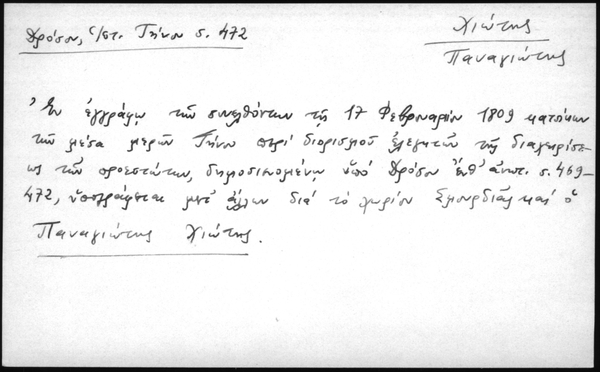 Δρόσου, Ἱστ. Τήνου σ. 472
Χιώτης
Παναγιώτης
Ἐν ἐγγράφῳ τῶν συνελθόντων τῇ 17 Φεβρουαρίου 1809 κατοίκων
τῶν μέσα μερῶν Τήνου περί διορισμοῦ ἐλεγκτῶν τῆς διαχειρίσε-
ως τῶν προεστώτων, δημοσιευομένῳ ὑπό Δρόσου ἔνθ' ἀνωτ. σ. 469-
472, ὑπογράφεται μετ' ἄλλων διά τό χωρίον Σμουρδιᾶς καί ὁ
Παναγιώτης Χιώτης.